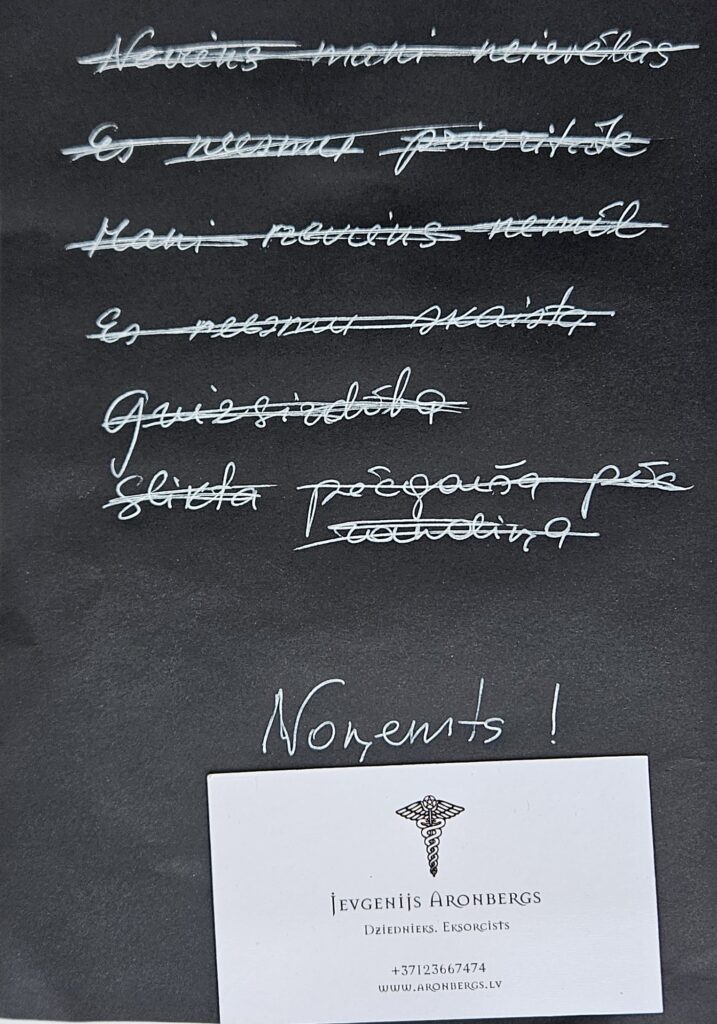 Neviens mani neievēlas
Es neesmu prioritāte
Mani neviens nemīl
Es neesmu skaista
Greizsirdība
Slikta pēcgarša pēc
randiņa
Noņemts !
Jevgenijs Aronbergs
Dziednieks. Eksorcists
+37123667474
www.aronbergs.lv